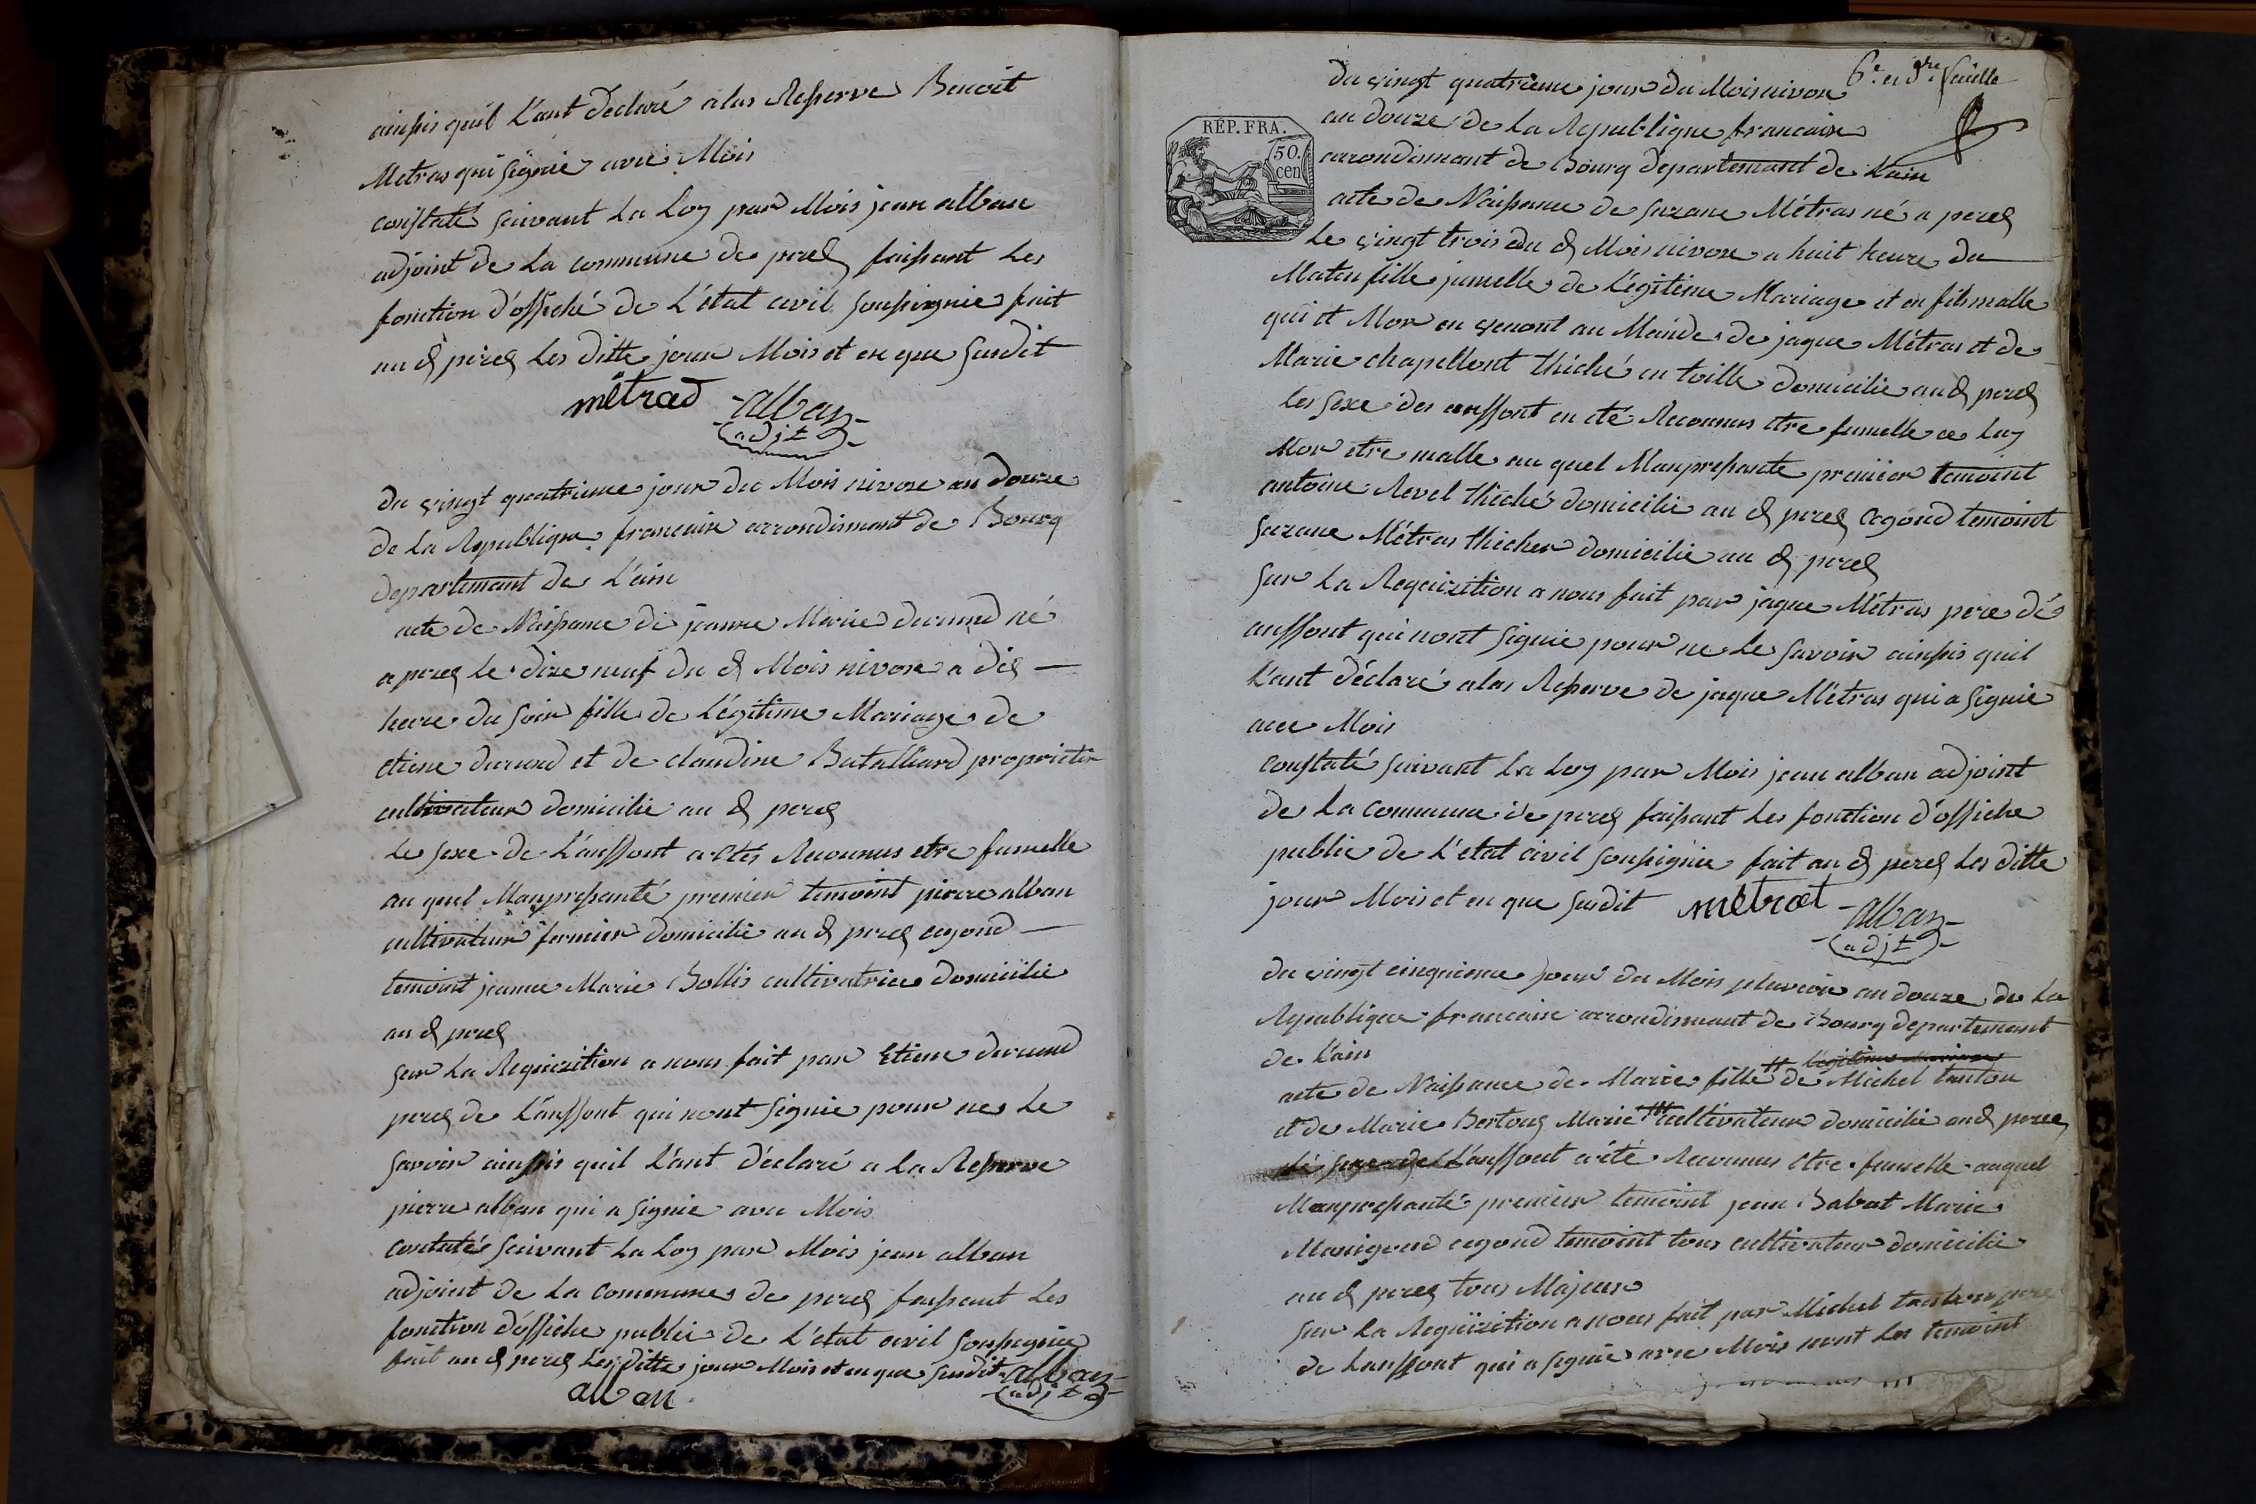 ainssis quil L'ant Declaré alas Resserve Benoit
Metras qui signie avec Mois
constaté suivant La Loy par Mois jean alban
adjoint de La commune de perex faissant Les
fonction d'offiché de L'état civil soussignie fait
au d perex Les ditte jour Mois et en que susdit
métrad alban
adjt
du vingt quatrieme jour du Mois nivose an douze
de La Republique francaise arrondisment de Bourg
departemant de L'ain
acte de Naissance de jeanne Marie durand né
a perex Le dixe neuf du d Mois nivose a dix
heure du soir fille de Légitime Mariage de
etiene durand et de claudine Batalliard proprietir
cultivateur domicilie au d perex
Le sexe de L'anffont a etés Reconnus etre fumelle
au quel Manpressanté premier temoint pierre alban
cultivateur fermier domicilie au d perex cegond
temoint jeanne Marie Bollis cultivatrice domicilie
au d perex
sur La Requizition a nous fait par Etiene durand
perex de L'anffont qui nont signie pour nes Le
savoir ainssis quil L'ant déclaré a La Resserve
pierre alban qui a signie avec Mois
contatés suivant La Loy par Mois jean alban
adjoint de La Commune de perex faissant Les
fonction d'offiche public de L'état civil soussignie
fait au d perex Les ditte jour Mois et en que susdit alban
alban adjt
6e et 9re feuille
RÉP. FRA.
50.
cen
du vingt quatrieme jour du Mois nivose
an douze de La Republique francaise
arrondismant de Bourg departemant de L'ain
acte de Naissance de suzane Métras né a perex
Le vingt trois du d Mois nivose a huit heure du
Matin fille jumelle de Légitime Mariage et en fils malle
qui et Mor en venont au Monde de jaque Métras et de
Marie chapellont thiché en toille domicilie au d perex
Les sexe des anffont en eté Reconnus etre fumelle ce Luy
Mor etre malle au quel Manpressante premier temoint
antoine Revel thiché domicilie au d perex cegond temoint
suzane Métras thicher domicilie au d perex
sur La Requizition a nous fait par jaque Métras pere dé
anffont qui nont signie pour ne Le savoir ainssis quil
L'ant déclaré alas Resserve de jaque Métras qui a signie
avec Mois
constaté suivant La Loy par Mois jean alban adjoint
de La commune de perex faissant Les fonction d'offiche
public de L'etat civil soussignie fait au d perex Les ditte
jour Mois et en que susdit métrat alban
adjt
du vingt cinquieme jour du Mois pluviose an douze de La
Republique francaise arrondismant de Bourg departemant
de L'ain
Légitime Mariage
acte de Naissance de Marie fille de Michel tanton
et de Marie Bertoux Marie cultivateur domicilie au d perex
Lé sexe de L'anffont a été Reconnus Etre fumelle auquel
Manpressanté premier temoint jean Babat Marie
Manigand cegond temoint tous cultivateur domicilie
au d perex tous Majeur
sur La Requizition a nous fait par Michel tanton pere
de Lanffont qui a signie avec Mois nont Les temoint